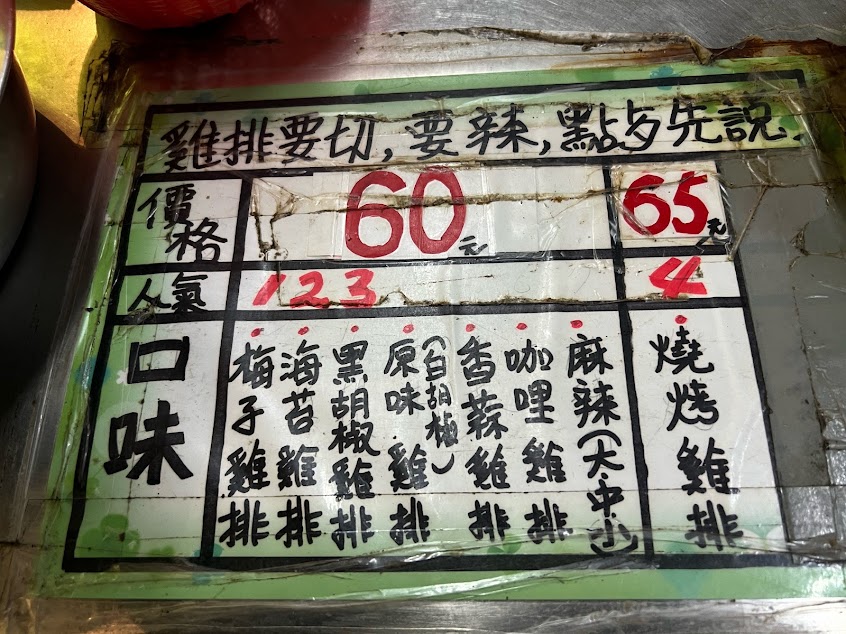 雞排要切,要辣,點时先說.
價格 60元 65元
人氣 1 2 3 4
口味
梅子雞排
海苔雞排
黑胡椒雞排
原味雞排
(白胡椒)
香蒜雞排
咖哩雞排
麻辣(大.中.小)
燒烤雞排